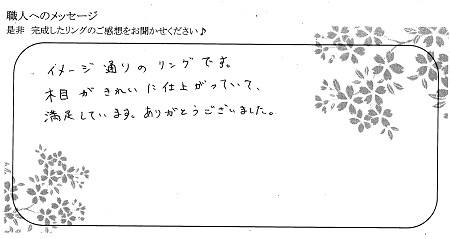 職人へのメッセージ
是非 完成したリングのご感想をお聞かせください♪
イメージ通りのリングです。
木目がきれいに仕上がっていて、
満足しています。ありがとうございました。